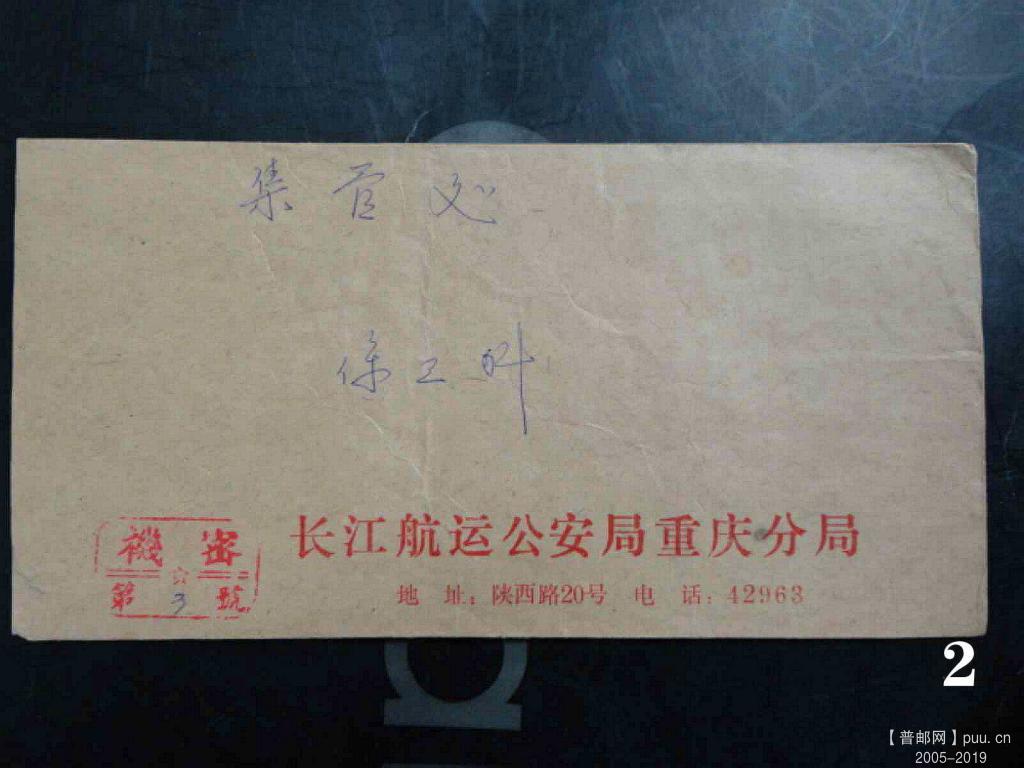 集管处
保卫科
機密
第3號
长江航运公安局重庆分局
地 址：陕西路20号 电 话：42963
2
【普邮网】puu.cn
2005-2019